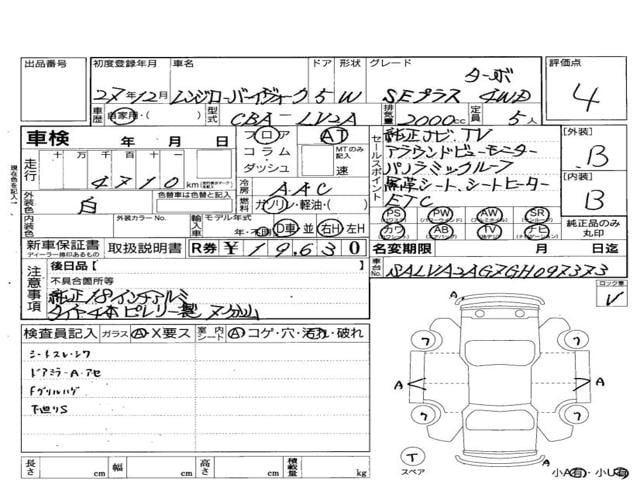 出品番号
初度登録年月 車名 ドア 形状 グレード 評価点
27年12月 レンジローバーイヴォーク 5 W SEプラス ターボ 4WD
4
車歴 自家用・( ) 型式 CBA-LV2A 排気量 2000cc 定員 5人
車検 年 月 日
フロア AT
コラム・ダッシュ MTのみ記入 速
走行 十万 万 千 百 十 4710 km
セールスポイント
純正ナビ、TV
アラウンドビューモニター
パノラミックルーフ
黒革シート、シートヒーター
ETC
[外装] B
[内装] B
現在色を記入
外装色 白 色替車は色替と記入
冷房 AAC
燃料 ガソリン・軽油・( )
内装色 外装カラーNo.
輸入車 モデル年式 年・不明 D車・並 右H・左H
PS PW AW SR
カワ AB TV ナビ
純正品のみ丸印
新車保証書 取扱説明書 R券 ¥19,630
ディーラー捺印あるもの
名変期限 月 日迄
車台No. SALVA2AG7GH097373
ロック車 レ
注意事項
後日品[ ]
不具合箇所等
純正18インチアルミ
タイヤ4本ピレリー製
検査員記入 ガラス A・X要ス 室内シート A コゲ・穴・汚れ・破れ
シートスレ・シワ
ドアミラーA・アセ
Fグリルハゲ
下廻りS
ワ ワ
A A
ワ ワ
T
スペア
小A有・小U有
長さ cm 幅 cm 高さ cm 積載量 kg